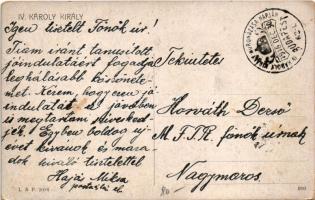 IV. KÁROLY KIRÁLY
Igen tisztelt Főnök úr!
Tiám iránt tanusított
jóindulatáért fogadja
leghálásabb köszönetemet.
Kérem, hogy ezen jó
indulatát a jövőben
is megtartani szíveskedjék.
Egyben boldog új
évet kivánok és maradok
kiváló tisztelettel
Hajós Miksa
Tekintetes
Horváth Dezső
M. F. T. R. főnök úrnak
Nagymaros
BUDAPEST
L & P